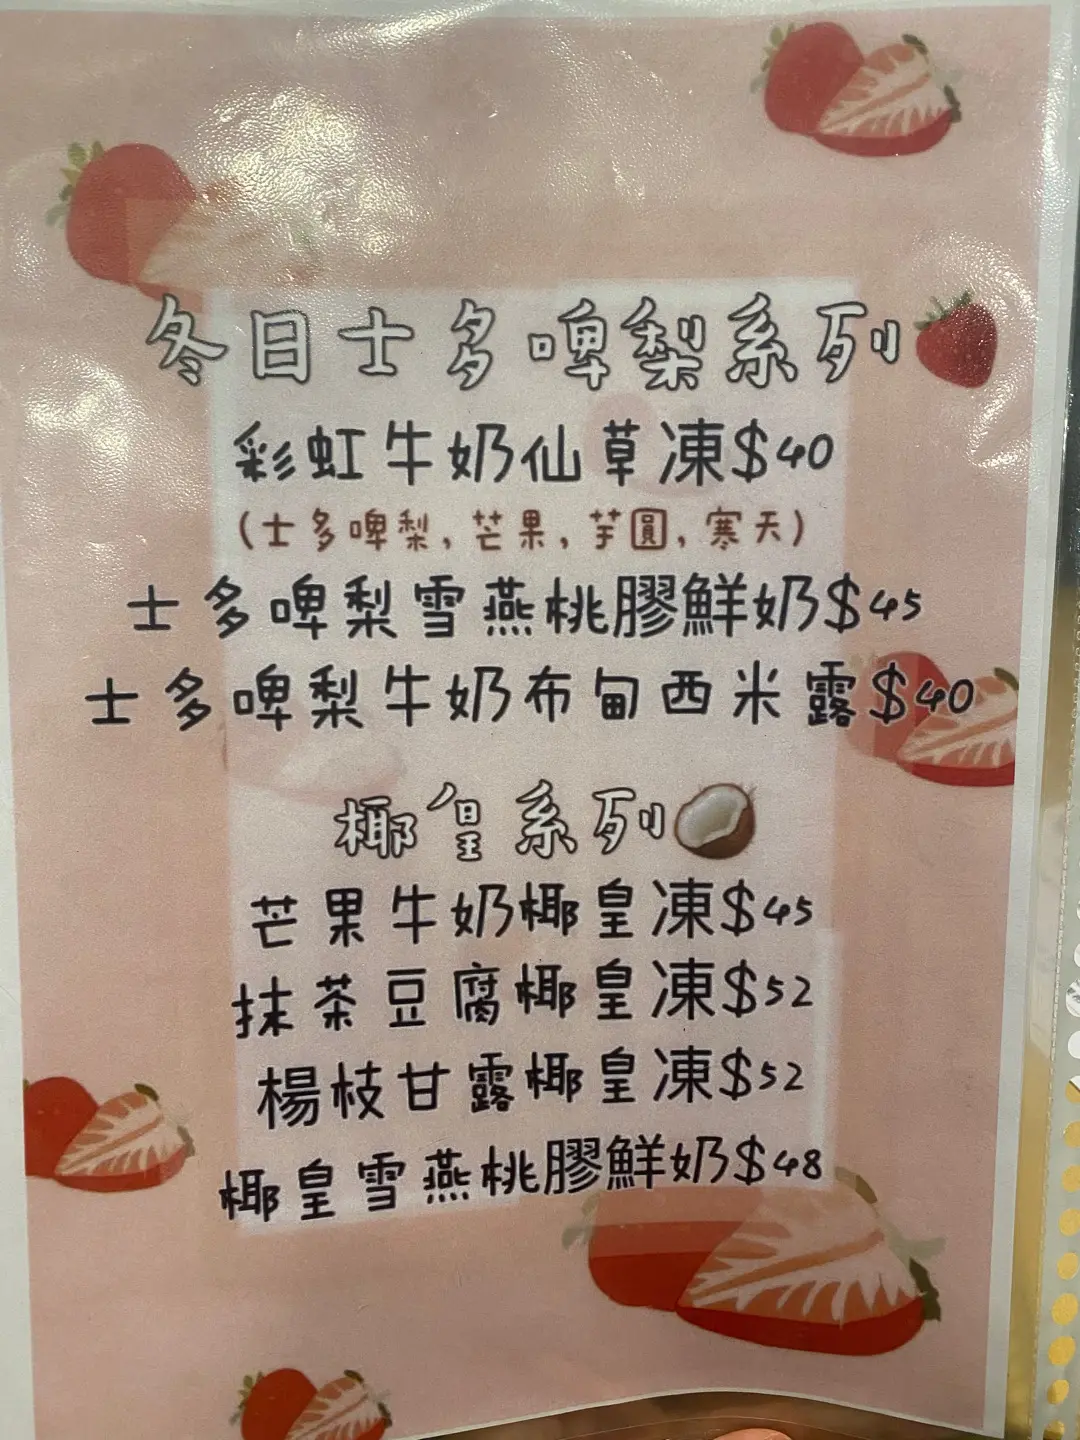 冬日士多啤梨系列
彩虹牛奶仙草凍$40
(士多啤梨,芒果,芋圓,寒天)
士多啤梨雪燕桃膠鮮奶$45
士多啤梨牛奶布甸西米露$40
椰皇系列
芒果牛奶椰皇凍$45
抹茶豆腐椰皇凍$52
楊枝甘露椰皇凍$52
椰皇雪燕桃膠鮮奶$48